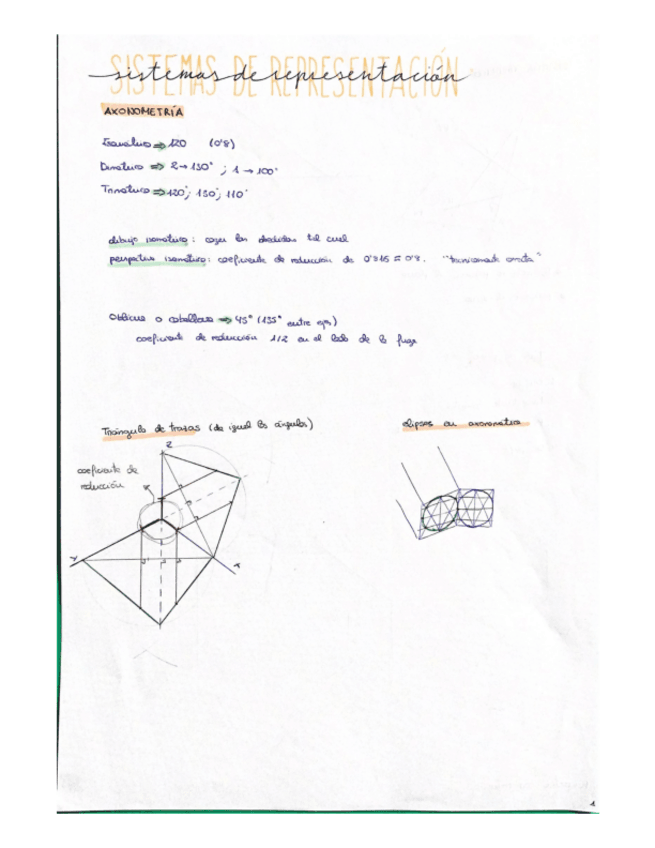 SISTEMAS DE REPRESENTACIÓN
sistemas de representación
AXONOMETRÍA
Isométrico ⇒ 120 (0'8)
Dimétrico ⇒ 2→130°; 1→100°
Trimétrico ⇒ 120°; 130°; 110°
dibujo isométrico: coger las medidas tal cual
perspectiva isométrica: coeficiente de reducción de 0'816 ≈ 0'8.
Oblicua o caballera ⇒ 45° (135° entre ejes)
coeficiente de reducción 1/2 en el lado de la fuga
Triángulo de trazas (da igual los ángulos)
elipses en axonometría
z
coeficiente de
reducción
Y
X
1